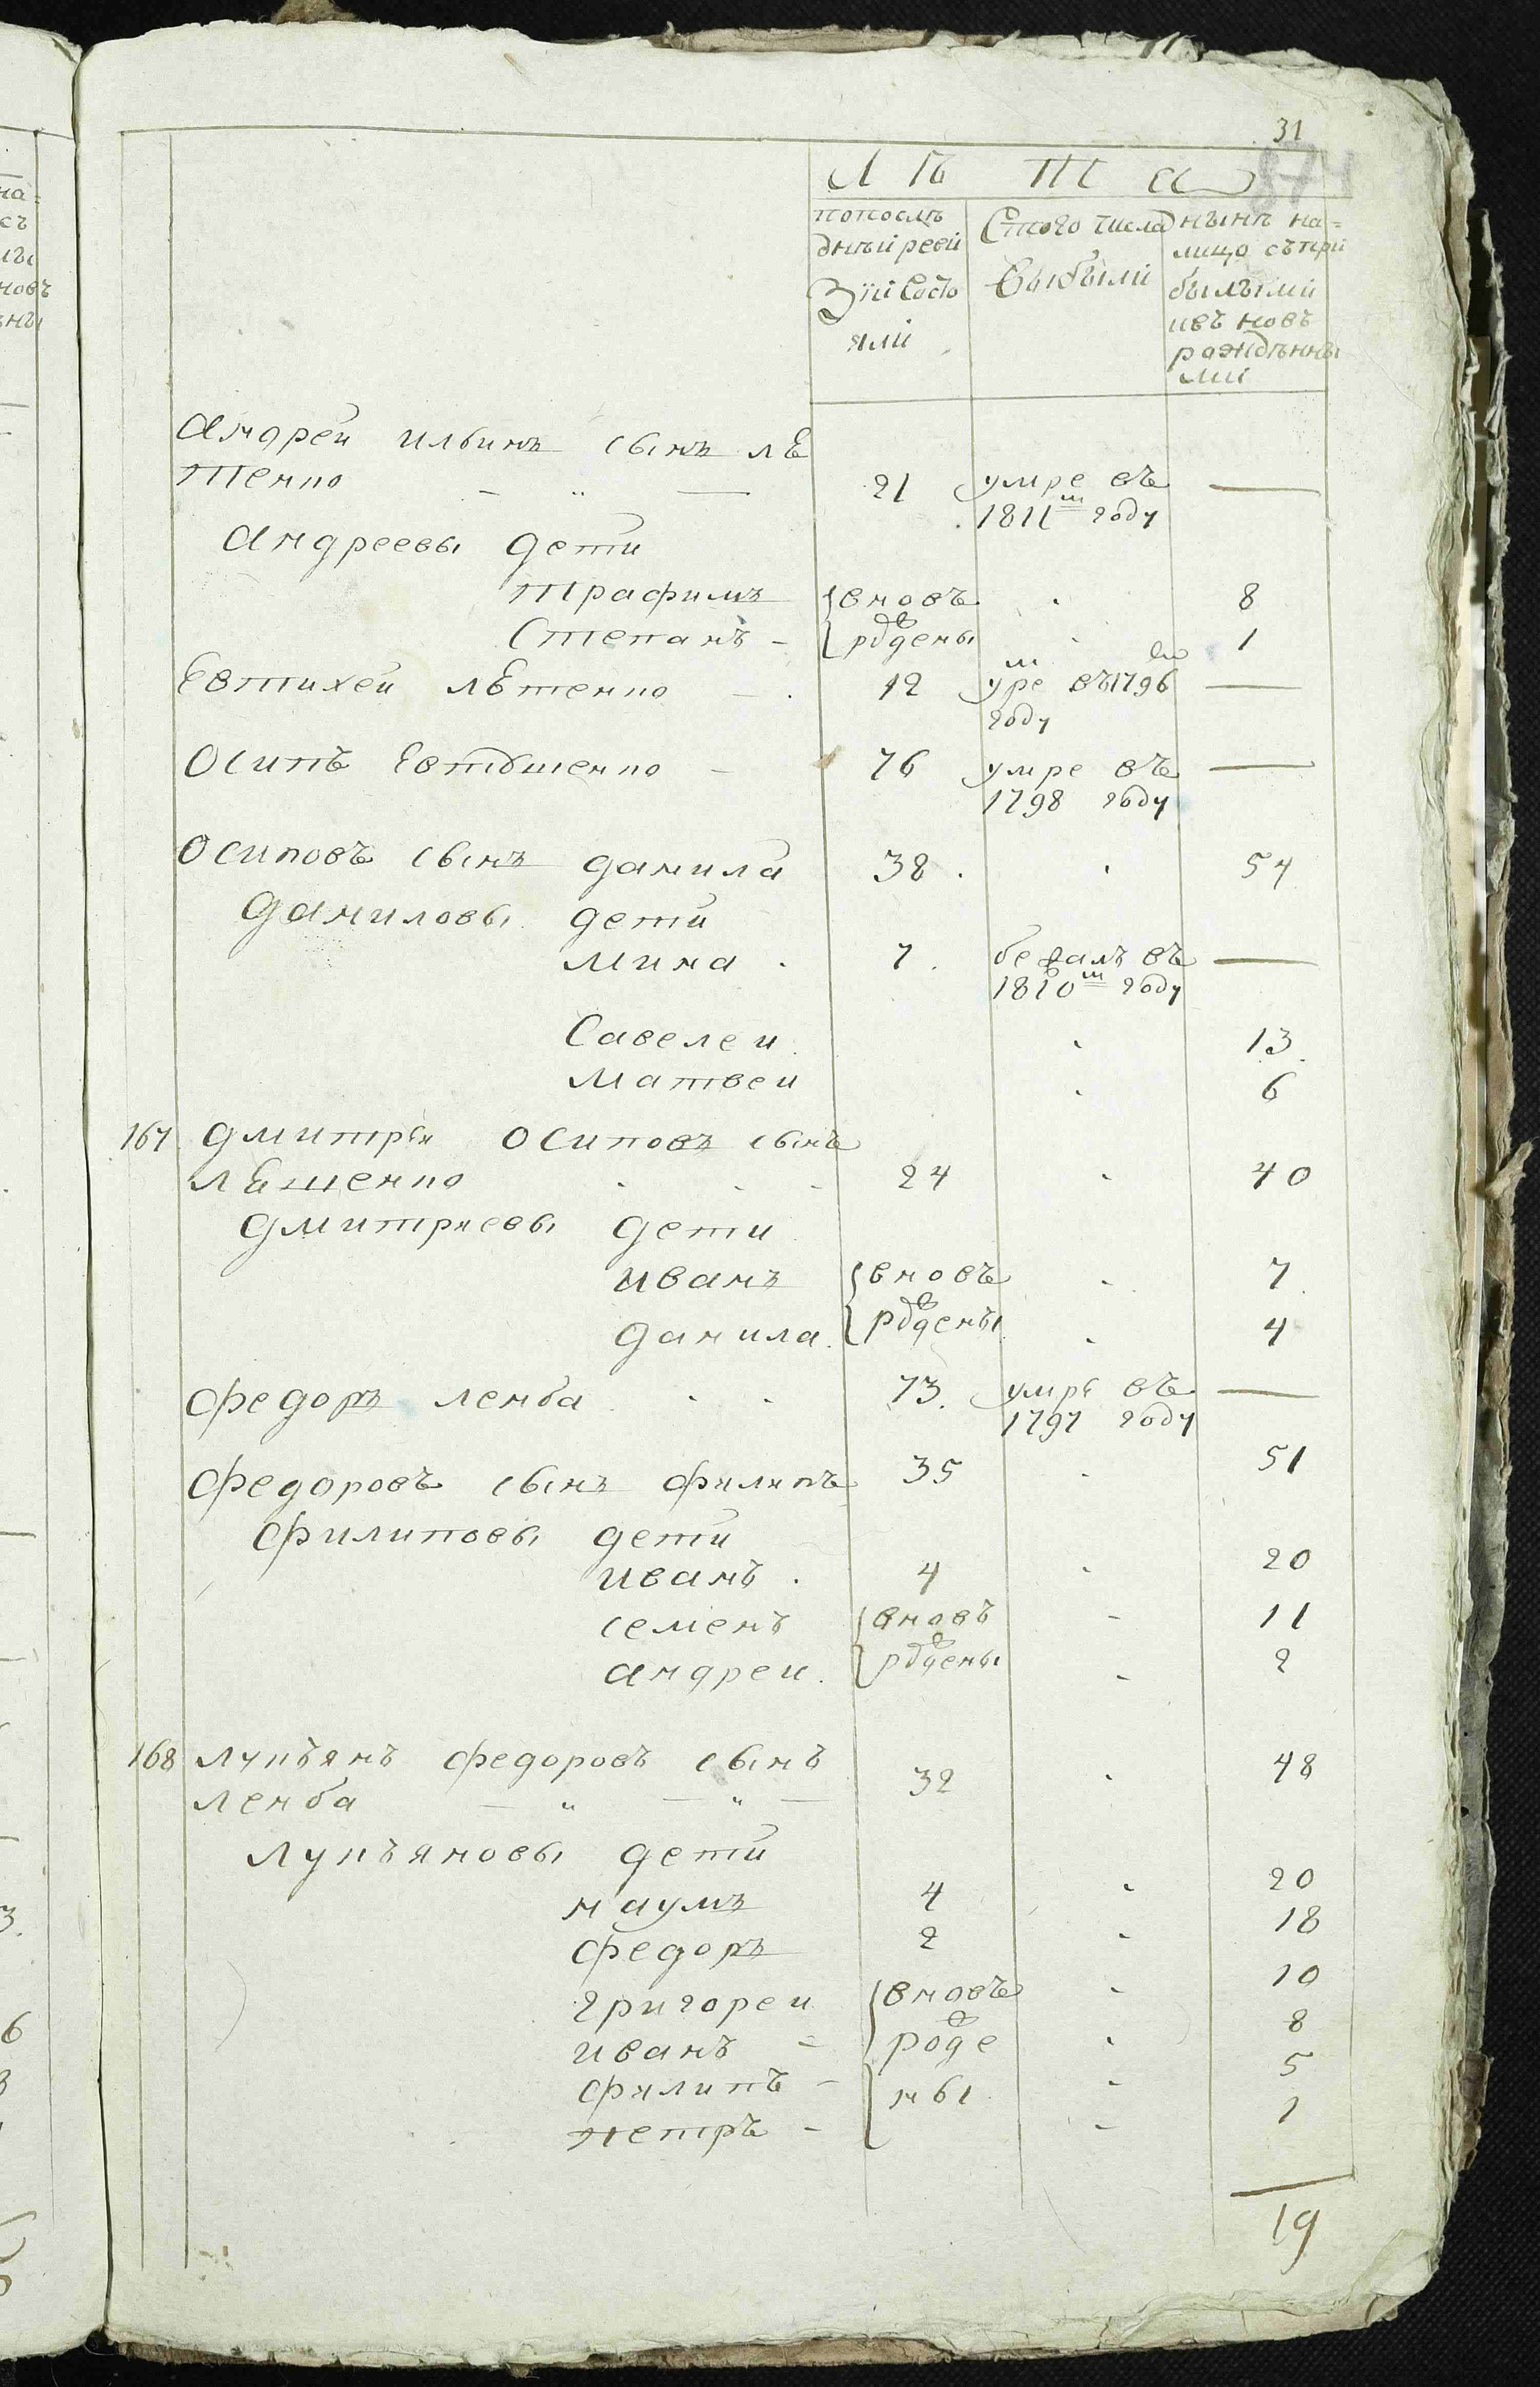 31
ЛѢТА
попослѣ Стого числа нынѣ на=
днѣй реви выбыли лицо съ при
зиі состо былыми
яли ивъ новъ
рождѣнны
ми
Андрей ильинъ сынъ лѣ
тенко 21 умре въ —
1811м году
Андреевы дети
трафимъ вновь 8
Степанъ - рождены 1
Евтихеи лѣтенко 12 умре въ 1796 —
году
Осипъ Евтушенко - 76 умре въ —
1798 году
Осиповъ сынъ данила 38 54
даниловы дети
мина 7 бежалъ въ —
1810м году
Савелеи 13
матвеи 6
167 дмитреи Осиповъ сынъ
24 40
дмитриевы дети
иванъ вновь 7
данила рождены 4
федоръ лемба 73 умре въ —
1797 году
федоровъ сынъ филипъ 35 51
филиповы дети
иванъ 4 20
семенъ вновь 11
андреи рождены 2
168 лукъянъ федоровъ сынъ
лемба 32 48
лукъяновы дети
наумъ 4 20
федоръ 2 18
григореи вновь 10
иванъ - рожде 8
филипъ - ны 5
петръ - 1
19